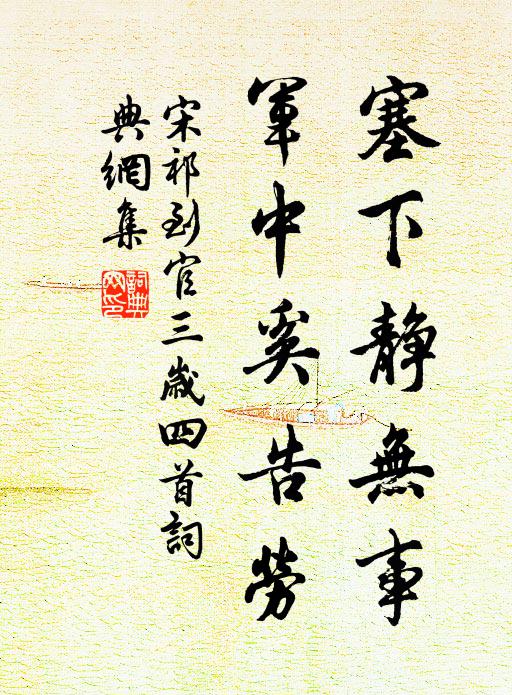 塞下静無事
軍中奚告勞
宋祁到官三歲四首詞
典網集
詞典網印